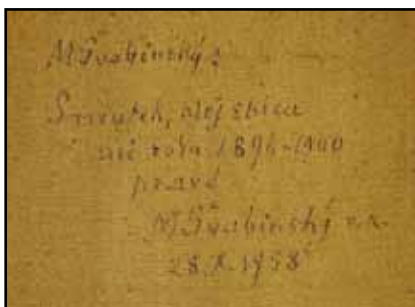 M Švabinský:
Smutek, olej skica
z roku 1896-1900
pravé
M Švabinský v.r.
28.X.1958